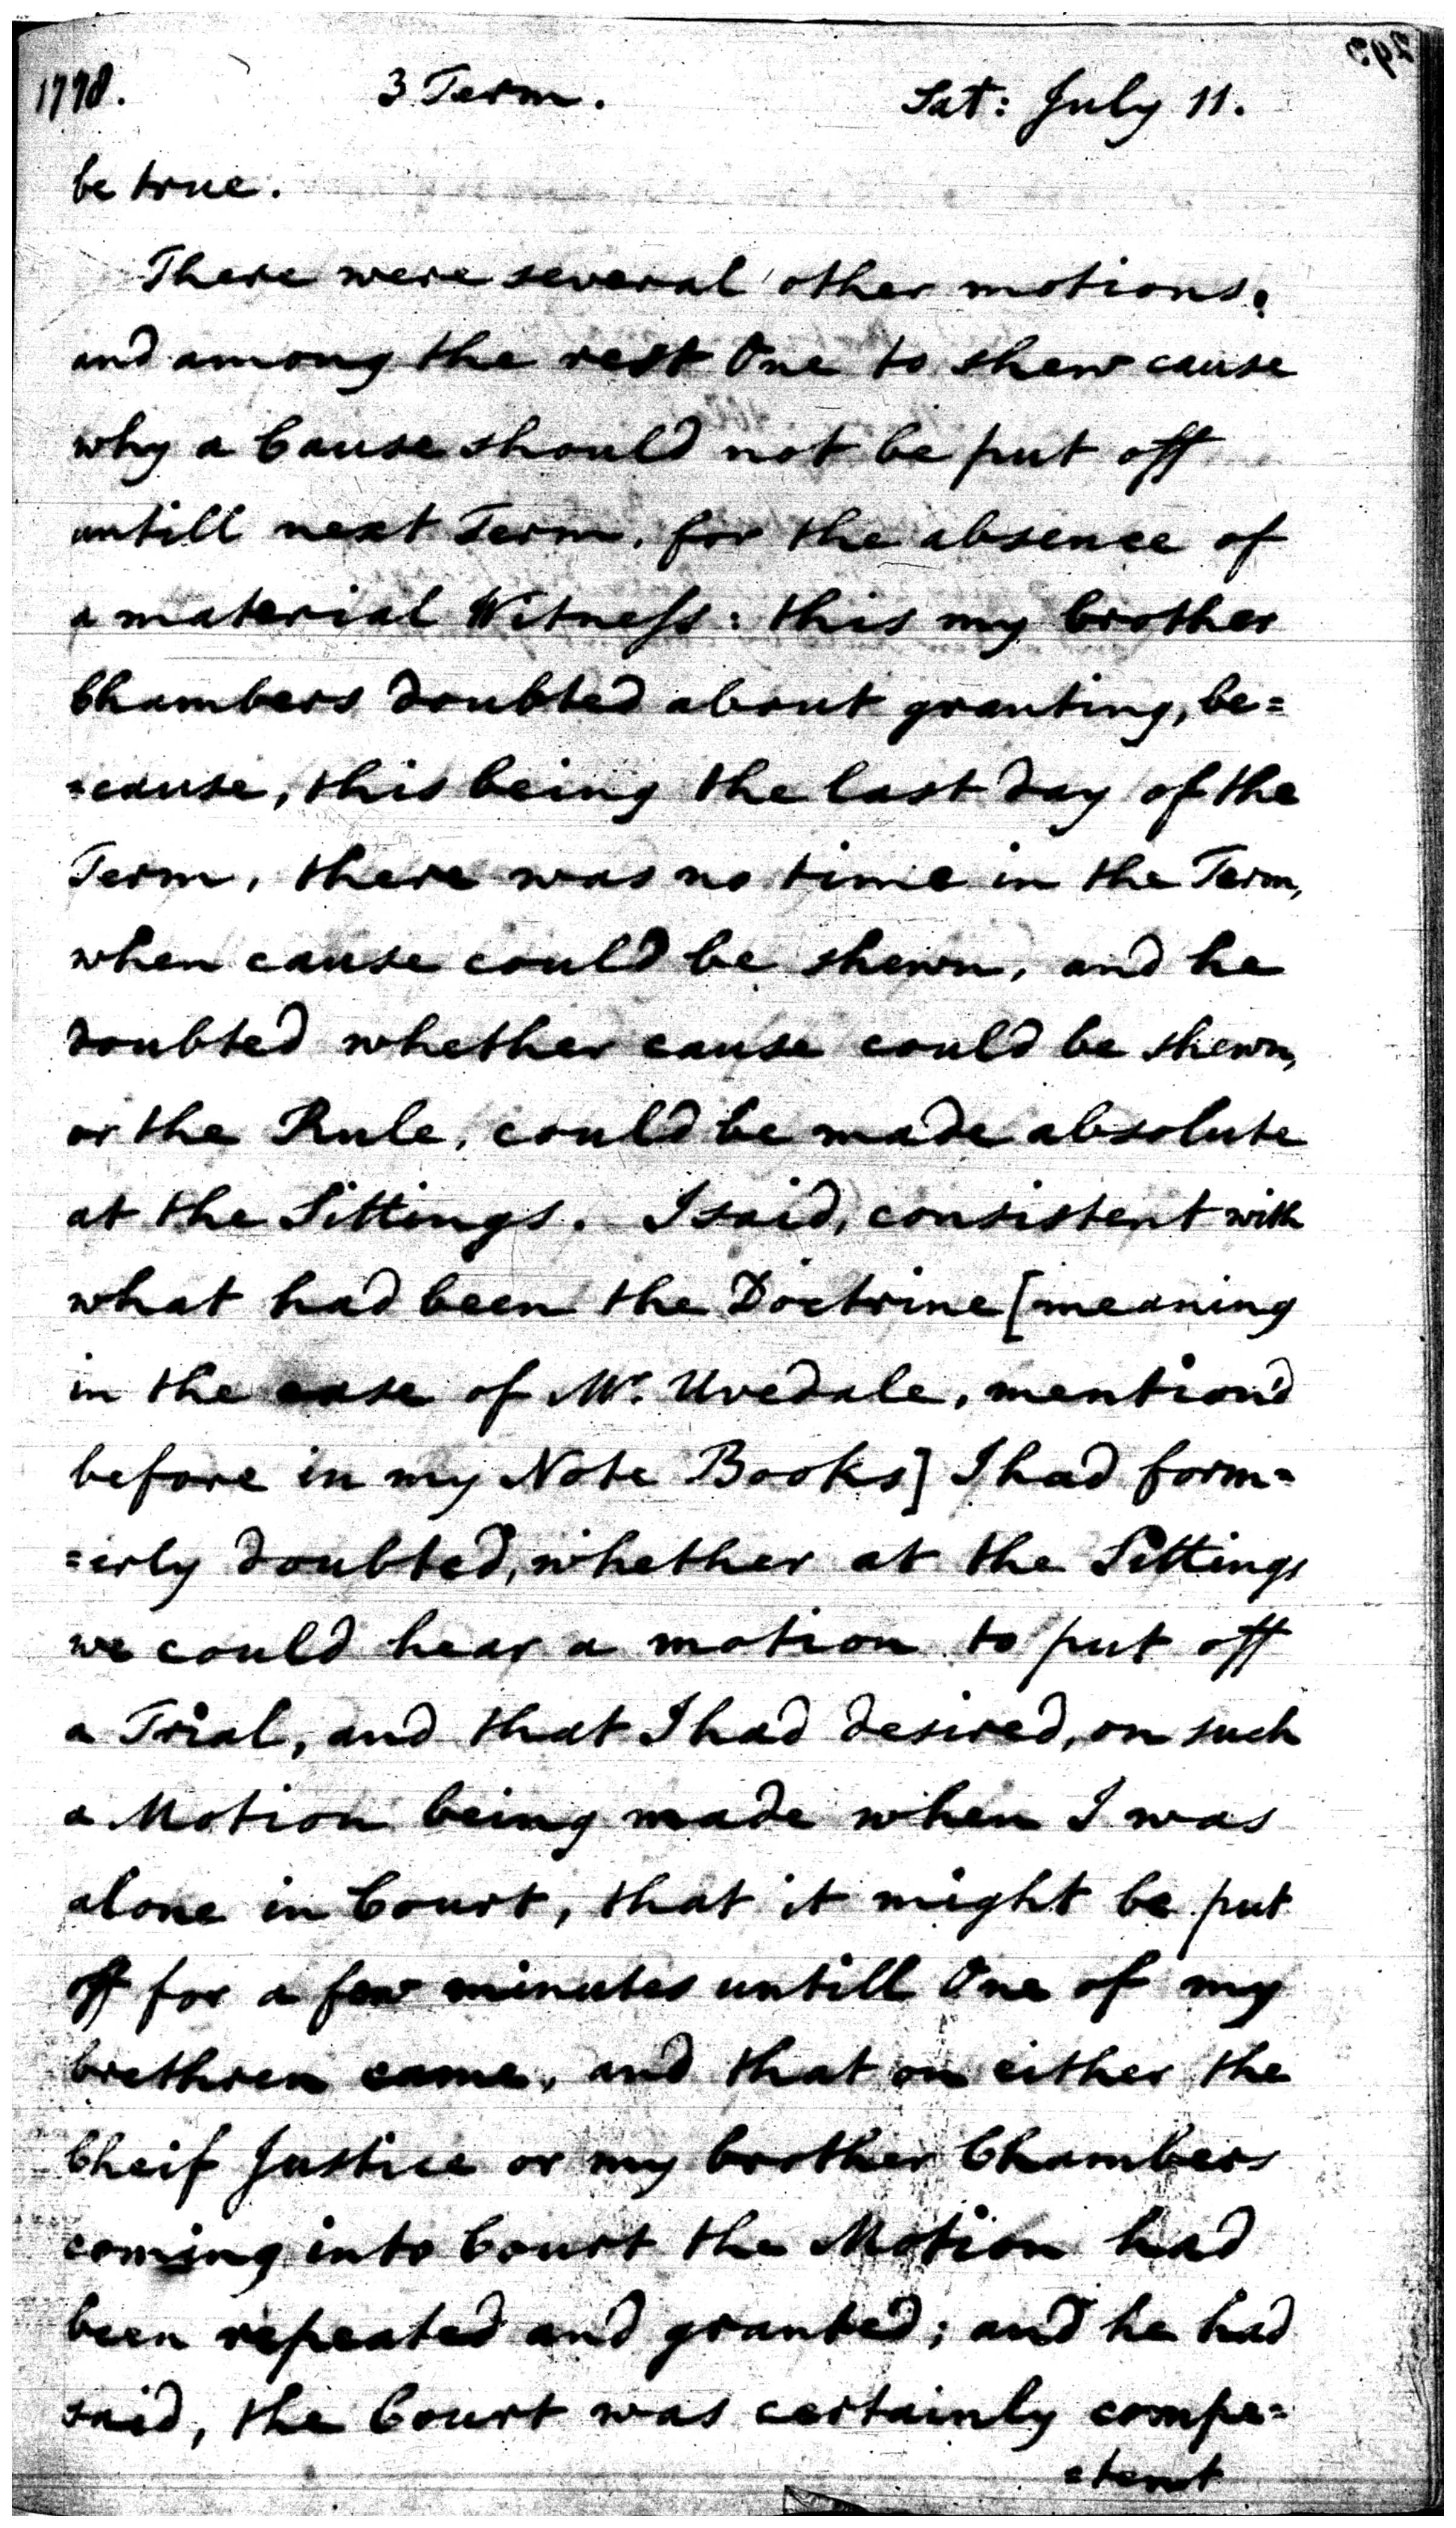 1778. 3 Term. Sat: July 11.
be true.
There were several other motions,
and among the rest One to shew cause
why a Cause should not be put off
untill next Term, for the absence of
a material Witness: this my brother
Chambers doubted about granting, be=
=cause, this being the last day of the
Term, there was no time in the Term,
when cause could be shewn, and he
doubted whether cause could be shewn,
or the Rule, could be made absolute
at the Sittings. I said, consistent with
what had been the Doctrine [meaning
in the case of Mr. Uvedale, mention'd
before in my Note Books] I had form=
=erly doubted, whether at the Sittings
we could hear a motion to put off
a Trial, and that I had desired, on such
a Motion being made when I was
alone in Court, that it might be put
off for a few minutes untill One of my
brethren came, and that on either the
Cheif Justice or my brother Chambers
coming into Court the Motion had
been repeated and granted; and he had
said, the Court was certainly compe=
=tent